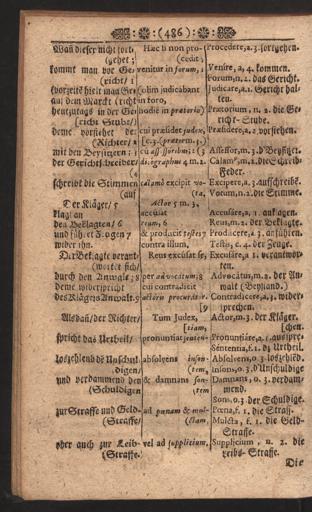 (486)
Wañ dieser nicht fort- Hæc si non pro- Procedere, a. 3. fortgehen.
(gehet; (cedit;
kommt man vor Ge- venitur in forum, 1 Venire, a. 4. kommen.
(richt/ 1 Forum, n. 2. das Gericht.
(vorzeits hielt man Ge- (olim judicabant Judicare, a. 1. Gericht hal-
auf dem Marckt (richt in foro, ten.
heutzutags in der Ge- hodiè in prætorio) Prætorium, n. 2. die Ge-
(richt Stube/) richt-Stube.
deme vorstehet der cui præsidet judex, Præsidere, a. 2 vorstehen.
(Richter/ 2
mit den Beysitzern: 3 Assessor, m. 3. d'Beysitzer.
der Gerichtschreiber/ Feder.
schreibt die Stimmen calamô excipit vo- Excipere, a. 3 auffschreibē.
(auf Votum, n. 2. die Stimme.
Der Kläger/ 5 Actor 5 m. 3.
klagt an accusat Accusare, a. 1. anklagen.
den Beklagten/ 6 reum, 6 Reus, m. 2. der Beklagte.
und führet Zeugen 7 & producit testes 7 Producere, a 3. anführen.
wider ihn. contra illum. Testis, c. 4. der Zeuge.
Der Beklagte verant- Reus excusat se,
(wortet sich/ ten.
durch den Anwalt; 8 per advocatum; 8 Advocatus, m. 2. der An-
deme widerspricht cui contradicit walt (Beystand.)
des Klägers Anwalt. 9 Contradicere, a. 3. wider-
sprechen.
Alsdañ/ der Richter/ Tum Judex, Actor, m 3. der Kläger.
[tiam, [chen.
spricht das Urtheil/ pronunciat senten-
Sententia, f. 1. dz Urtheil.
loszehlend dē Unschul- absolvens inson- Absolvens, o 3 loszehlēd.
(digen/ (tem, Insons, o 3. d'Unschuldige
und verdammend den & damnans son- Damnans, o. 3. verdam-
(Schuldigen (tem mend.
Sons, o 3. der Schuldige.
zur Straffe und Geld- ad pœnam & mul- Pœna, f. 1. die Straff.
(Straffe/ (ctam, Mulcta, f. 1. die Geld-
Straffe.
oder auch zur Leib- vel ad supplicium. Supplicium, n. 2. die
(Straffe. Leibs-Straffe.
Die